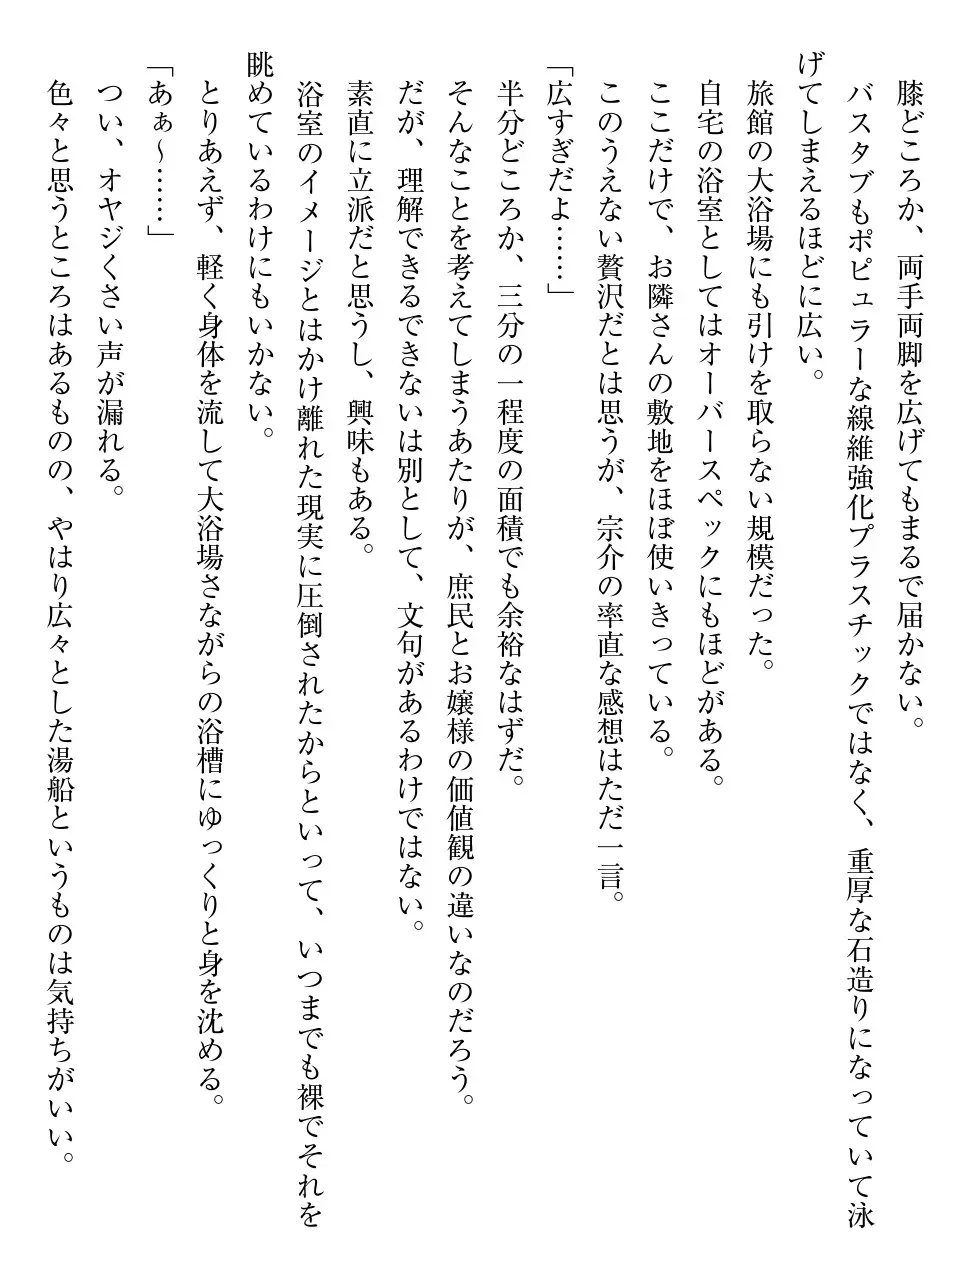 膝どころか、両手両脚を広げてもまるで届かない。
バスタブもポピュラーな線維強化プラスチックではなく、重厚な石造りになっていて泳
げてしまえるほどに広い。
旅館の大浴場にも引けを取らない規模だった。
自宅の浴室としてはオーバースペックにもほどがある。
ここだけで、お隣さんの敷地をほぼ使いきっている。
このうえない贅沢だとは思うが、宗介の率直な感想はただ一言。
「広すぎだよ……」
半分どころか、三分の一程度の面積でも余裕なはずだ。
そんなことを考えてしまうあたりが、庶民とお嬢様の価値観の違いなのだろう。
だが、理解できるできないは別として、文句があるわけではない。
素直に立派だと思うし、興味もある。
浴室のイメージとはかけ離れた現実に圧倒されたからといって、いつまでも裸でそれを
眺めているわけにもいかない。
とりあえず、軽く身体を流して大浴場さながらの浴槽にゆっくりと身を沈める。
「あぁ〜……」
つい、オヤジくさい声が漏れる。
色々と思うところはあるものの、やはり広々とした湯船というものは気持ちがいい。